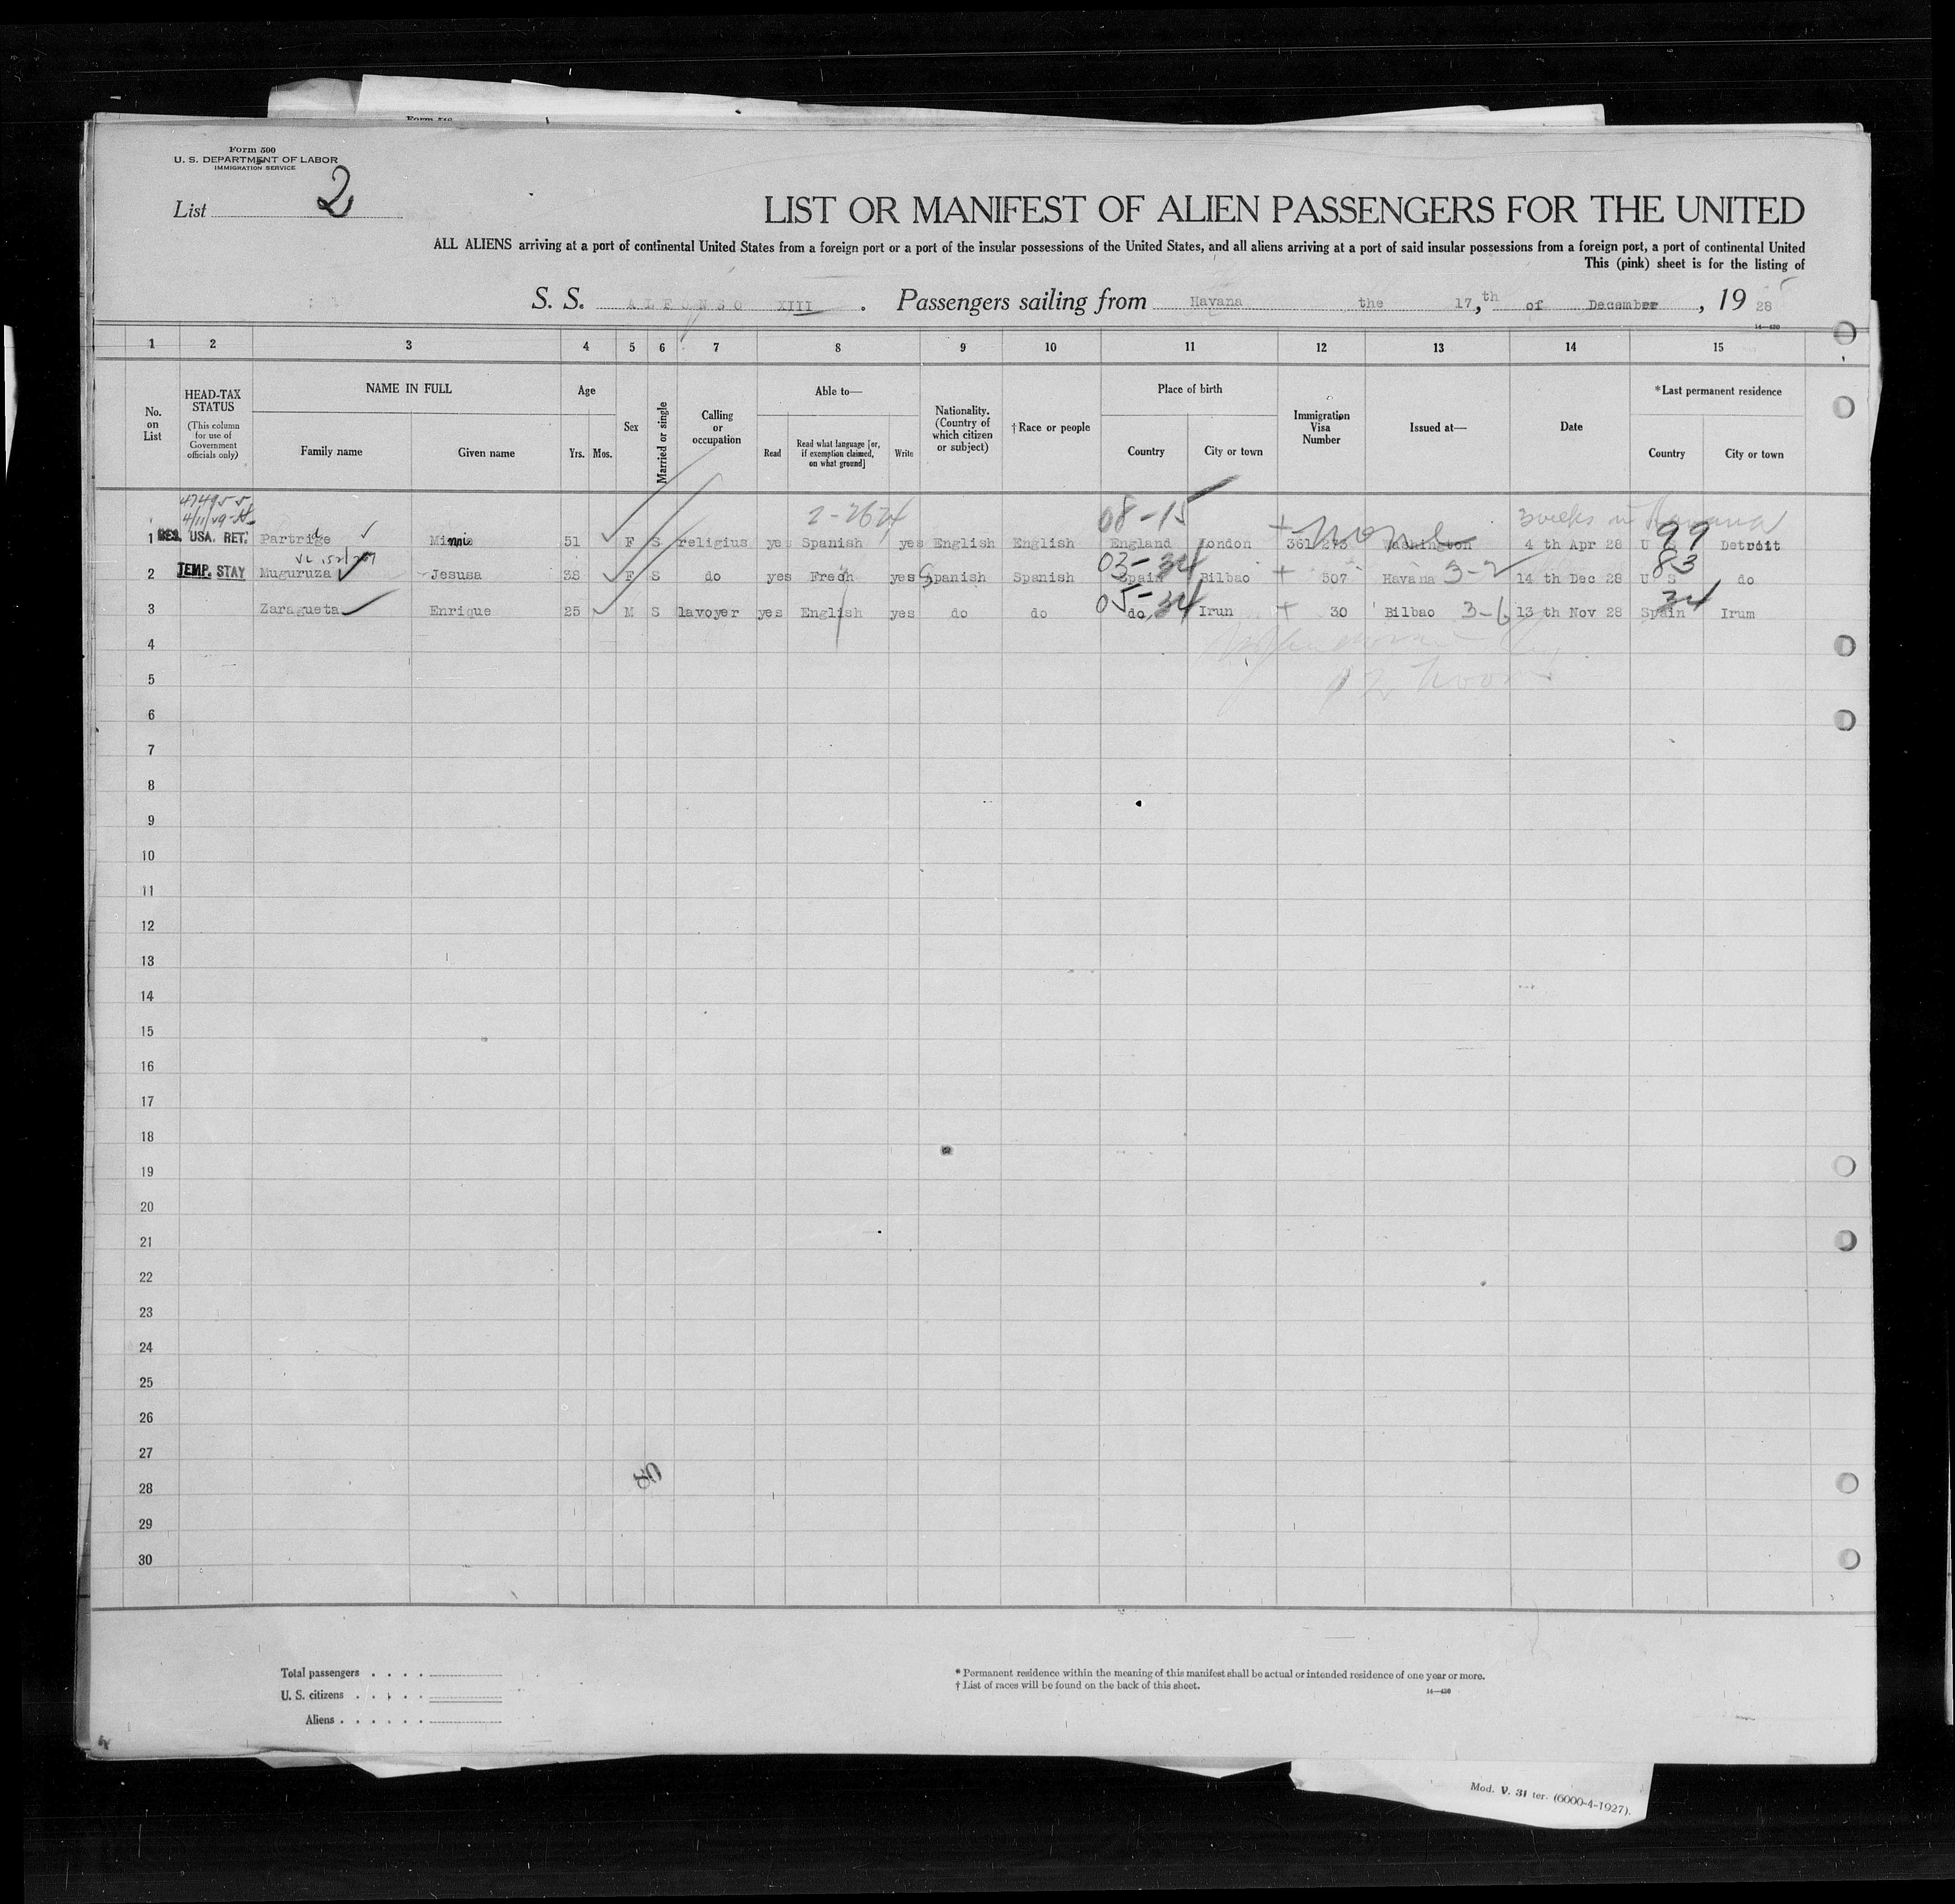 Form 500
U. S. DEPARTMENT OF LABOR
IMMIGRATION SERVICE
List 2
LIST OR MANIFEST OF ALIEN PASSENGERS FOR THE UNITED
ALL ALIENS arriving at a port of continental United States from a foreign port or a port of the insular possessions of the United States, and all aliens arriving at a port of said insular possessions from a foreign port, a port of continental United
This (pink) sheet is for the listing of
S. S. ALFONSO XIII . Passengers sailing from Havana the 17,th of December , 19 28
14—420
1 2 3 4 5 6 7 8 9 10 11 12 13 14 15
No. on List
HEAD-TAX STATUS (This column for use of Government officials only)
NAME IN FULL
Family name Given name
Age
Yrs. Mos.
Sex
Married or single
Calling or occupation
Able to—
Read Read what language [or, if exemption claimed, on what ground] Write
Nationality. (Country of which citizen or subject)
†Race or people
Place of birth
Country City or town
Immigration Visa Number
Issued at—
Date
*Last permanent residence
Country City or town
2-2624 08-15 3 weeks in Havana
1 RES. USA. RET. Partridge Minnie 51 F S religius yes Spanish yes English English England London 361 273 none Washington 4 th Apr 28 U S 99 Detroit
2 TEMP. STAY Muguruza Jesusa 38 F S do yes Frech yes Spanish Spanish 03-34 Spain Bilbao 507 Havana 3-2 14 th Dec 28 U S 83 do
3 Zaragueta Enrique 25 M S lavoyer yes English yes do do 05-34 do Irun 30 Bilbao 3-6 13 th Nov 28 Spain 34 Irum
4
5
6
7
8
9
10
11
12
13
14
15
16
17
18
19
20
21
22
23
24
25
26
27
28
29
30
Total passengers . . . .
U. S. citizens . . . . .
Aliens . . . . . .
* Permanent residence within the meaning of this manifest shall be actual or intended residence of one year or more.
† List of races will be found on the back of this sheet.
14—420
Mod. V. 31 ter. (6000-4-1927).